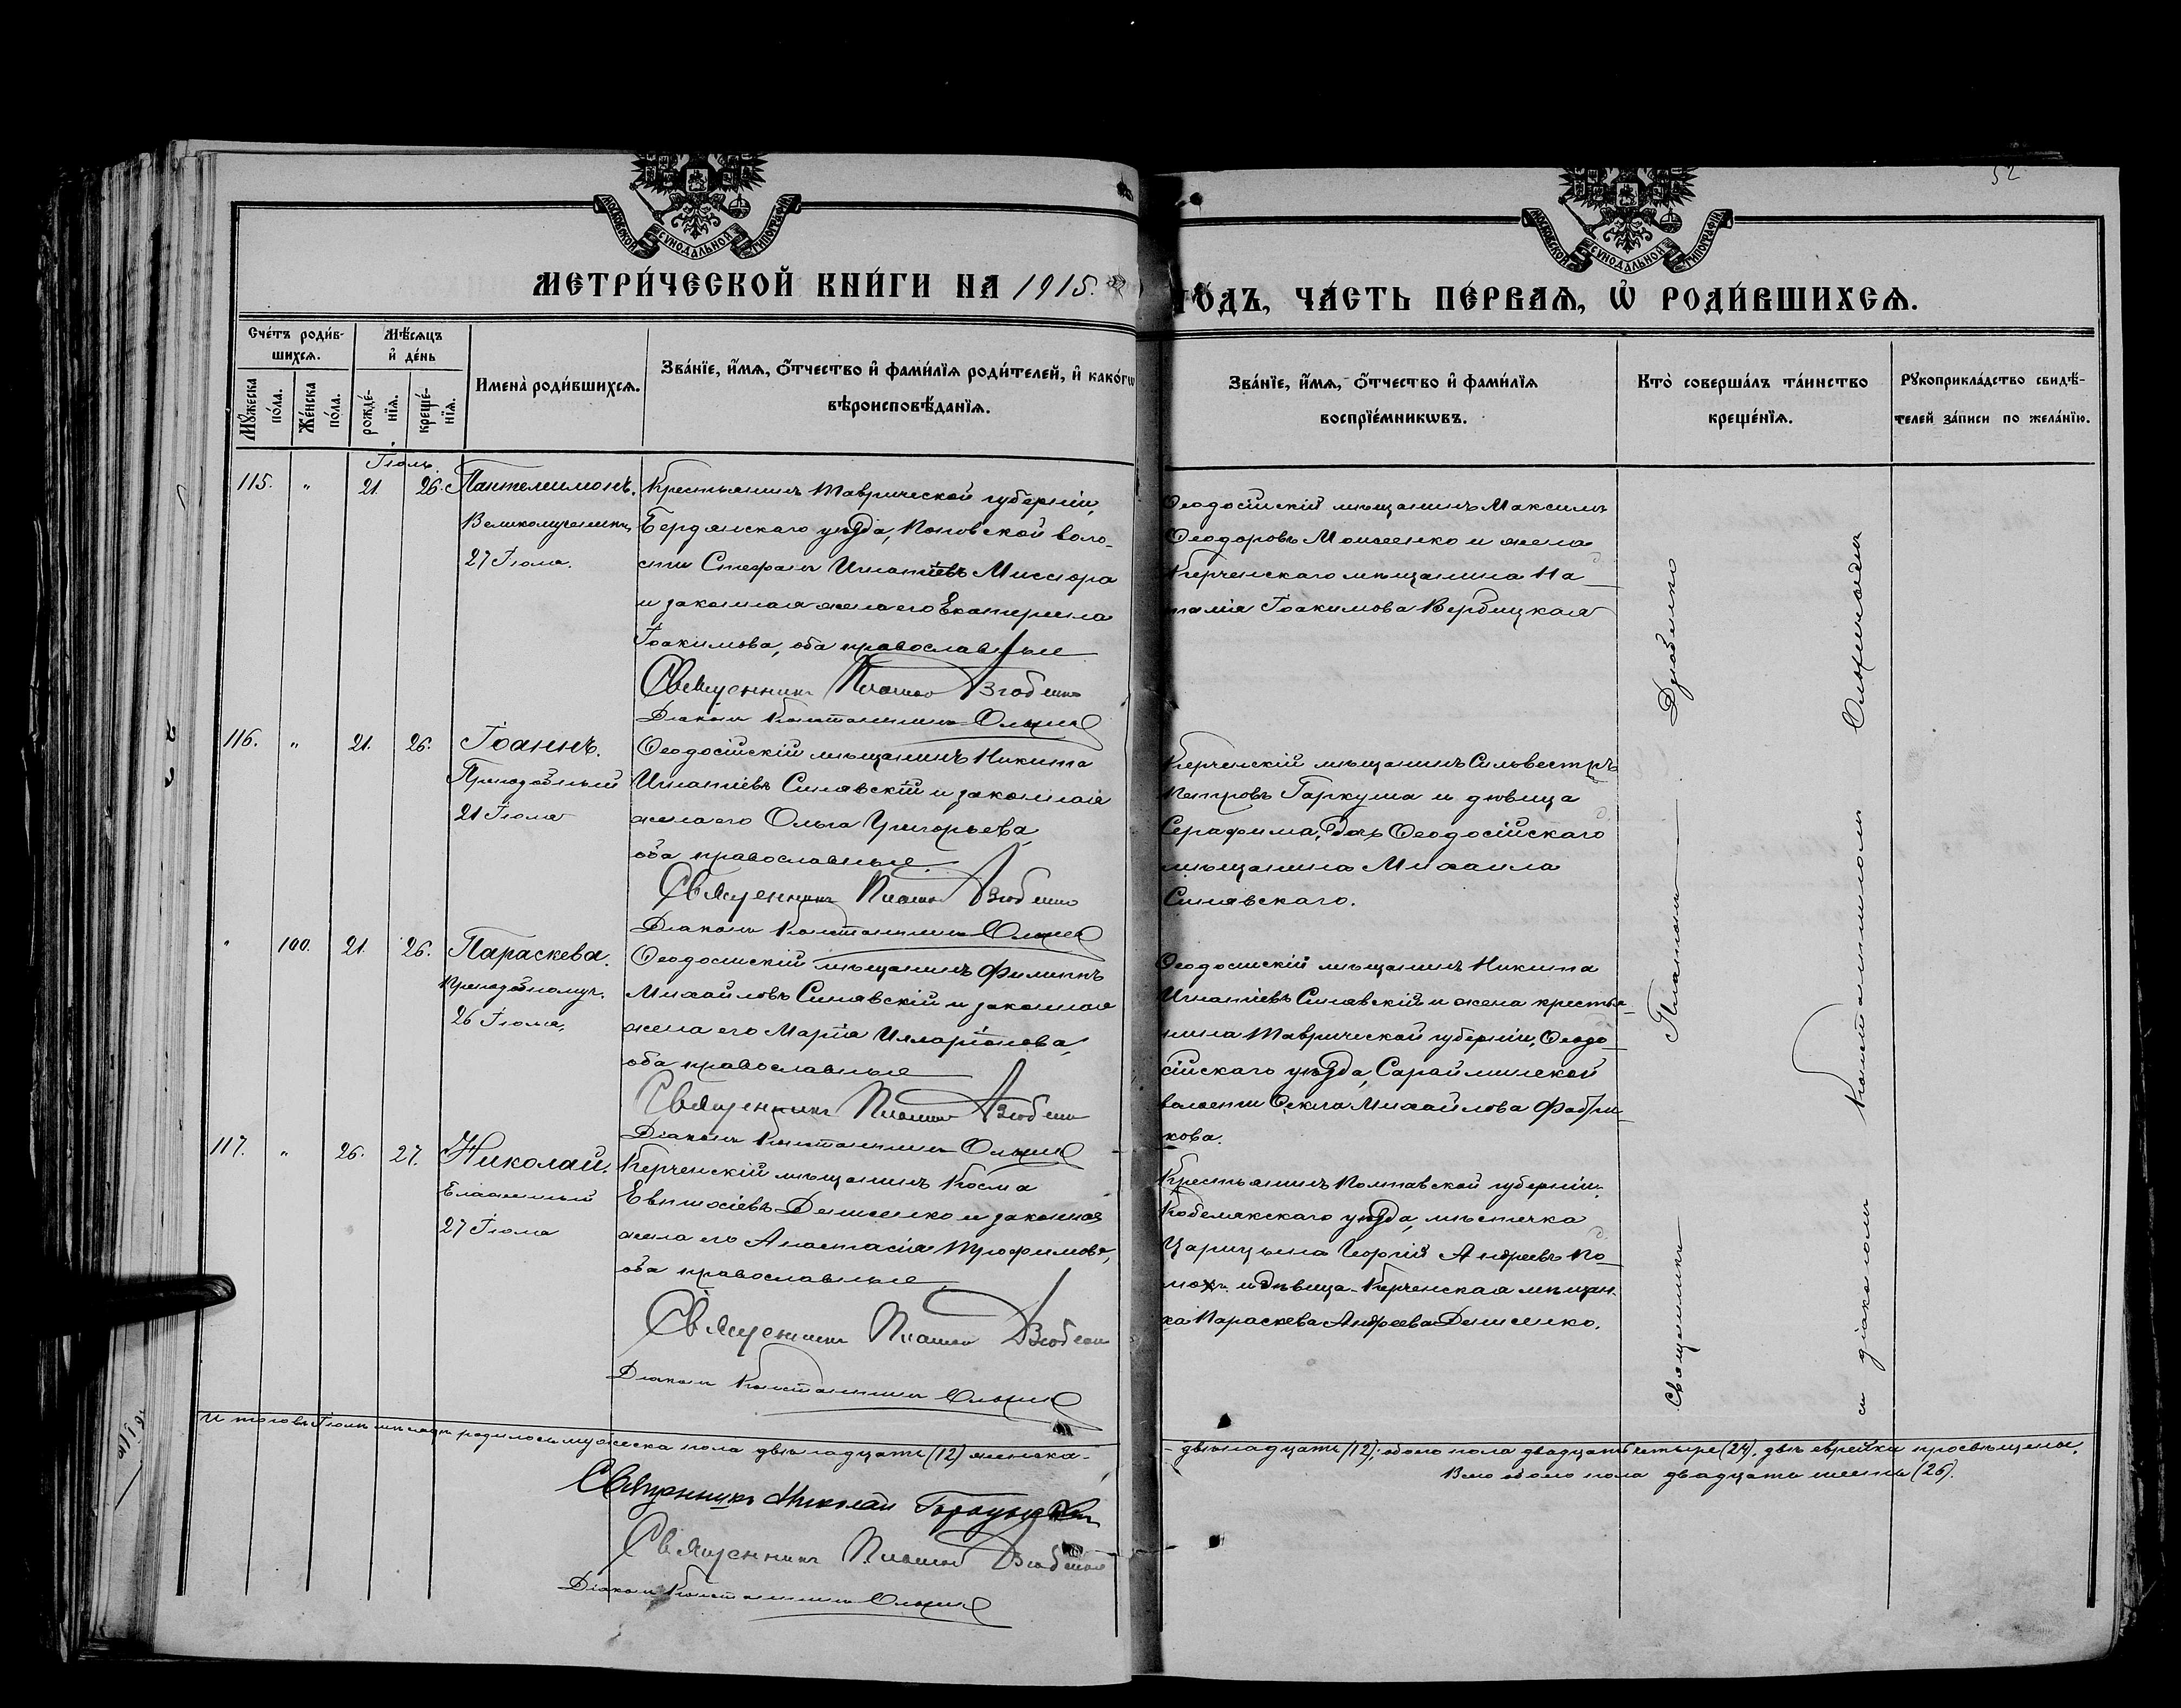 52
МОСКОВСКОЙ СУНОДАЛЬНОЙ ТИПОГРАФІИ
МОСКОВСКОЙ СУНОДАЛЬНОЙ ТИПОГРАФІИ
МЕТРИ́ЧЕСКОЙ КНИ́ГИ НА 1915
ГО́ДЪ, ЧА́СТЬ ПЕ́РВАЯ, Ѡ҆ РОДИ́ВШИХСЯ.
Сче́тъ роди́в-
шихся.
Мѣ́сяцъ
и҆ де́нь
Мꙋ́жеска
по́ла.
Же́нска
по́ла.
рожде́-
нїя.
креще́-
нїя.
Имена̀ роди́вшихся.
Зва́нїе, и҆́мя, ѻ҆́тчество и҆ фами́лїя роди́телей, и҆ како́гѡ
вѣроисповѣ́данїя.
Зва́нїе, и҆́мя, ѻ҆́тчество и҆ фами́лїя
воспрїе́мникѡвъ.
Кто̀ соверша́лъ та́инство
креще́нїя.
Рꙋкоприкла́дство свидѣ́-
телей за́писи по жела́нїю.
Іюль.
115. " 21. 26. Пантелимонъ.
Великомученикъ
27 Іюля.
Крестьянинъ Таврической губерніи,
Бердянскаго уѣзда, Поповской воло-
сти Стефанъ Игнатіевъ Миссюра
и законная жена его Екатерина
Іоакимова, оба православные
Священникъ Платонъ
Діаконъ Константинъ
Ѳеодосійскій мѣщанинъ Максимъ
Ѳеодоровъ Моисеенко и жена
Керченскаго мѣщанина На-
талія Іоакимова Вербицкая
116. " 21. 26. Іоаннъ.
Преподобный
21 Іюля
Ѳеодосійскій мѣщанинъ Никита
Игнатіевъ Синявскій и законная
жена его Ольга Григорьева,
оба православные
Священникъ Платонъ
Діаконъ Константинъ
Керченскій мѣщанинъ Сильвестръ
Петровъ Гаркуша и дѣвица
Серафима, дочь Ѳеодосійскаго
мѣщанина Михаила
Синявскаго.
" 100. 21. 26. Параскева.
Преподобномуч.
26 Іюля,
Ѳеодосійскій мѣщанинъ Филиппъ
Михайловъ Синявскій и законная
жена его Марія Илларіонова,
оба православные
Священникъ Платонъ
Діаконъ Константинъ
Ѳеодосійскій мѣщанинъ Никита
Игнатіевъ Синявскій и жена крестья-
нина Таврической губерніи, Ѳеодо-
сійскаго уѣзда, Сарайминской
волости Ѳекла Михайлова Фабри-
кова.
117. " 26. 27. Николай.
Блаженный
27 Іюля
Керченскій мѣщанинъ Косма
Евтихіевъ Денисенко и законная
жена его Анастасія Трофимова,
оба православные
Священникъ Платонъ
Діаконъ Константинъ
Крестьянинъ Полтавской губерніи,
Кобелякскаго уѣзда, мѣстечка
Царичанка Георгій Андреевъ
и дѣвица Керченская мѣщан-
ка Параскева Андреева Денисенко.
Священникъ Платонъ
и діаконъ Константинъ
Итого въ Іюлѣ мѣсяцѣ родилось мужеска пола двѣнадцать (12) женска-
- двѣнадцать (12); обоего пола двадцать четыре (24), двѣ еврейки просвѣщены.
Всего обоего пола двадцать шесть (26).
Священникъ Николай
Священникъ Платонъ
Діаконъ Константинъ